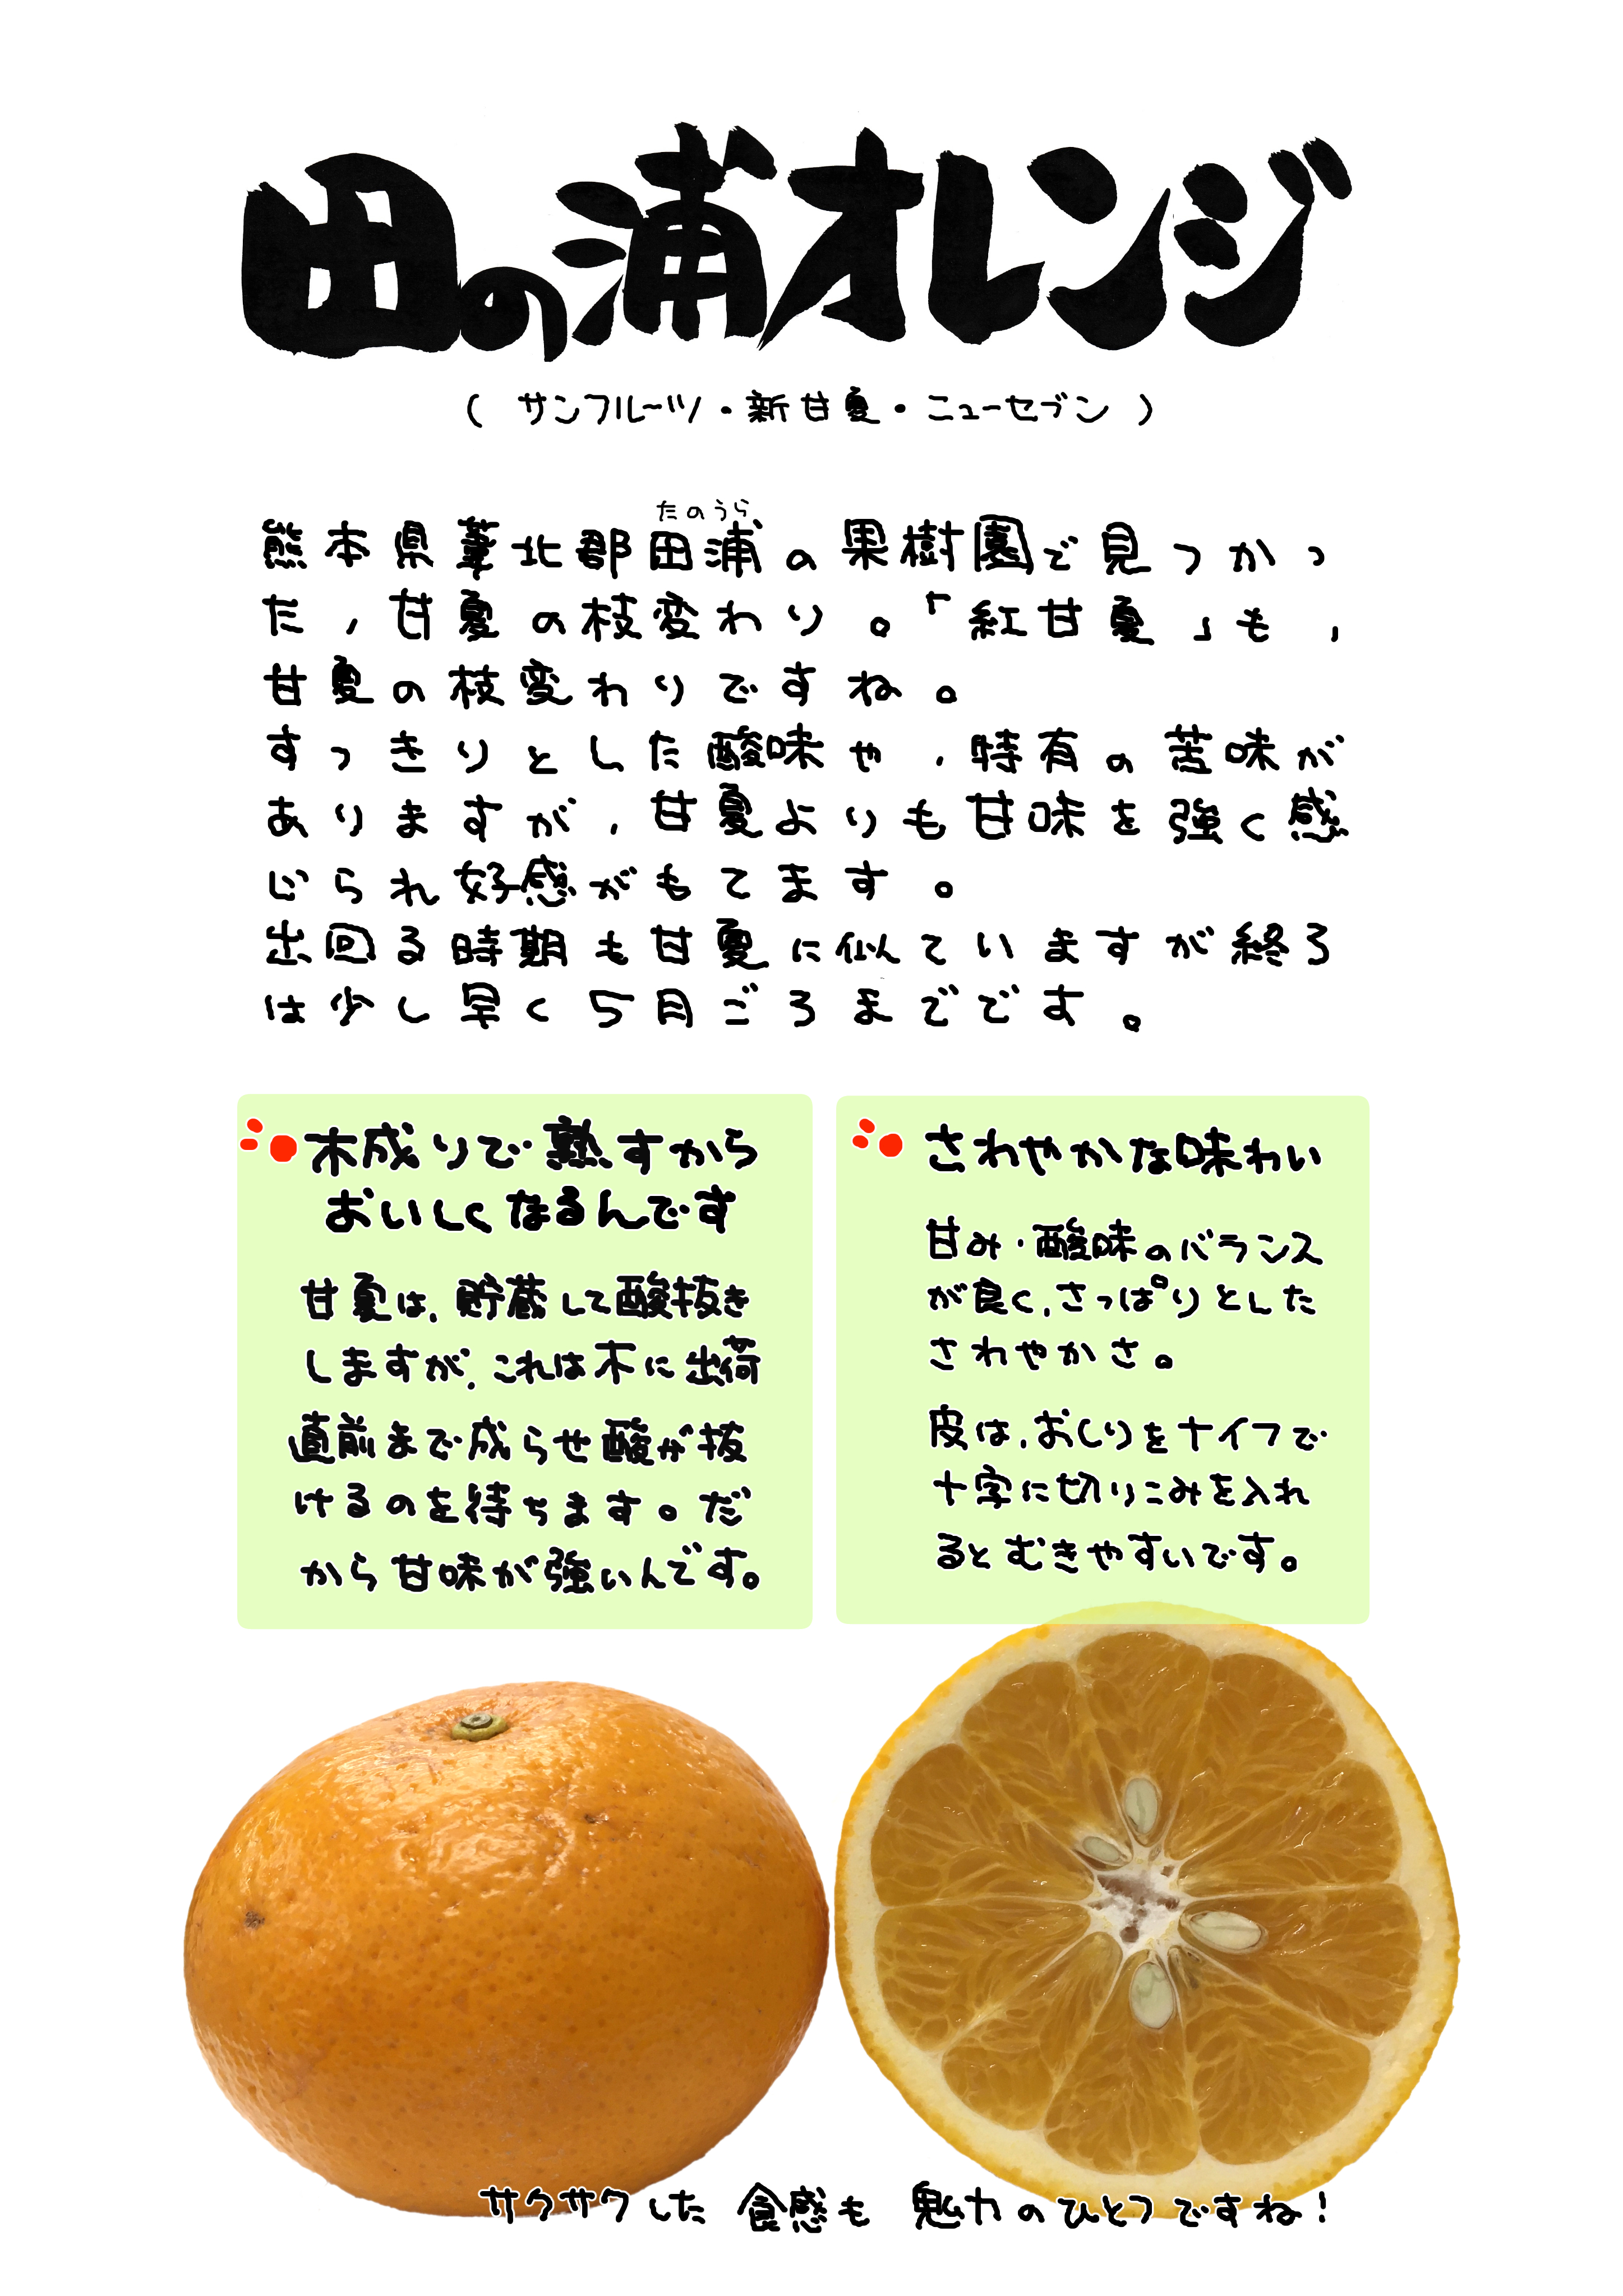 田の浦オレンジ
(サンフルーツ・新甘夏・ニューセブン)
たのうら
熊本県葦北郡田浦の果樹園で見つかっ
た、甘夏の枝変わり。「紅甘夏」も、
甘夏の枝変わりですね。
すっきりとした酸味や、特有の苦味が
ありますが、甘夏よりも甘味を強く感
じられ好感がもてます。
出回る時期も甘夏に似ていますが終ろ
は少し早く5月ごろまでです。
木成りで熟すから
おいしくなるんです
甘夏は、貯蔵して酸抜き
しますが、これは木に出荷
直前まで成らせ酸が抜
けるのを待ちます。だ
から甘味が強いんです。
さわやかな味わい
甘み・酸味のバランス
が良く、さっぱりとした
さわやかさ。
皮は、おしりをナイフで
十字に切りこみを入れ
るとむきやすいです。
サクサクした 食感も 魅力のひとつですね!